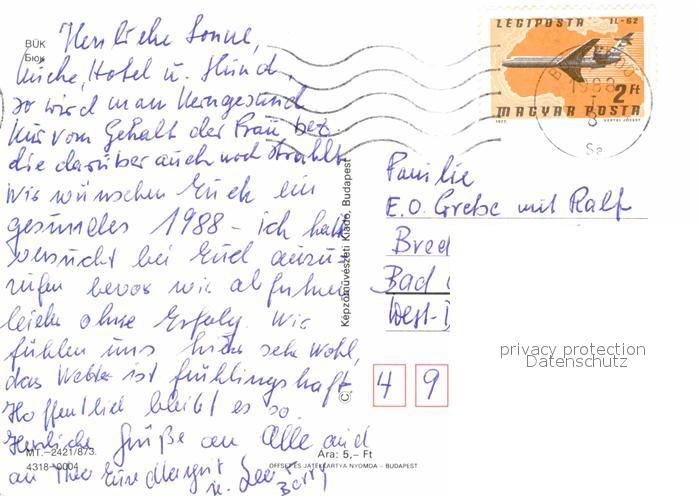 BÜK
Бюк
Herrliche Sonne,
Küche, Hotel u. Hund,
so wird man kerngesund
Kur vom Gehalt der Frau bez.
die darüber auch noch strahlt.
Wir wünschen Euch ein
gesundes 1988 - ich habe
versucht bei Euch anzu-
rufen bevor wir abfuhren
leider ohne Erfolg. Wir
fühlen uns hier sehr wohl,
das Wetter ist frühlingshaft
Hoffentlich bleibt es so.
Herzliche Grüße an Alle und
an Eure Margrit
u.
MT.-2421/873.
4318-0004
Ára: 5,- Ft
OFFSET ÉS JÁTÉKKÁRTYA NYOMDA - BUDAPEST
Képzőművészeti Kiadó, Budapest
LÉGIPOSTA IL-62
2 Ft
MAGYAR POSTA
1977 VERTEL JÓZSEF
1988
Familie
E.O. Gretse mit Ralf
Bred
Bad
West-
4 9
privacy protection
Datenschutz